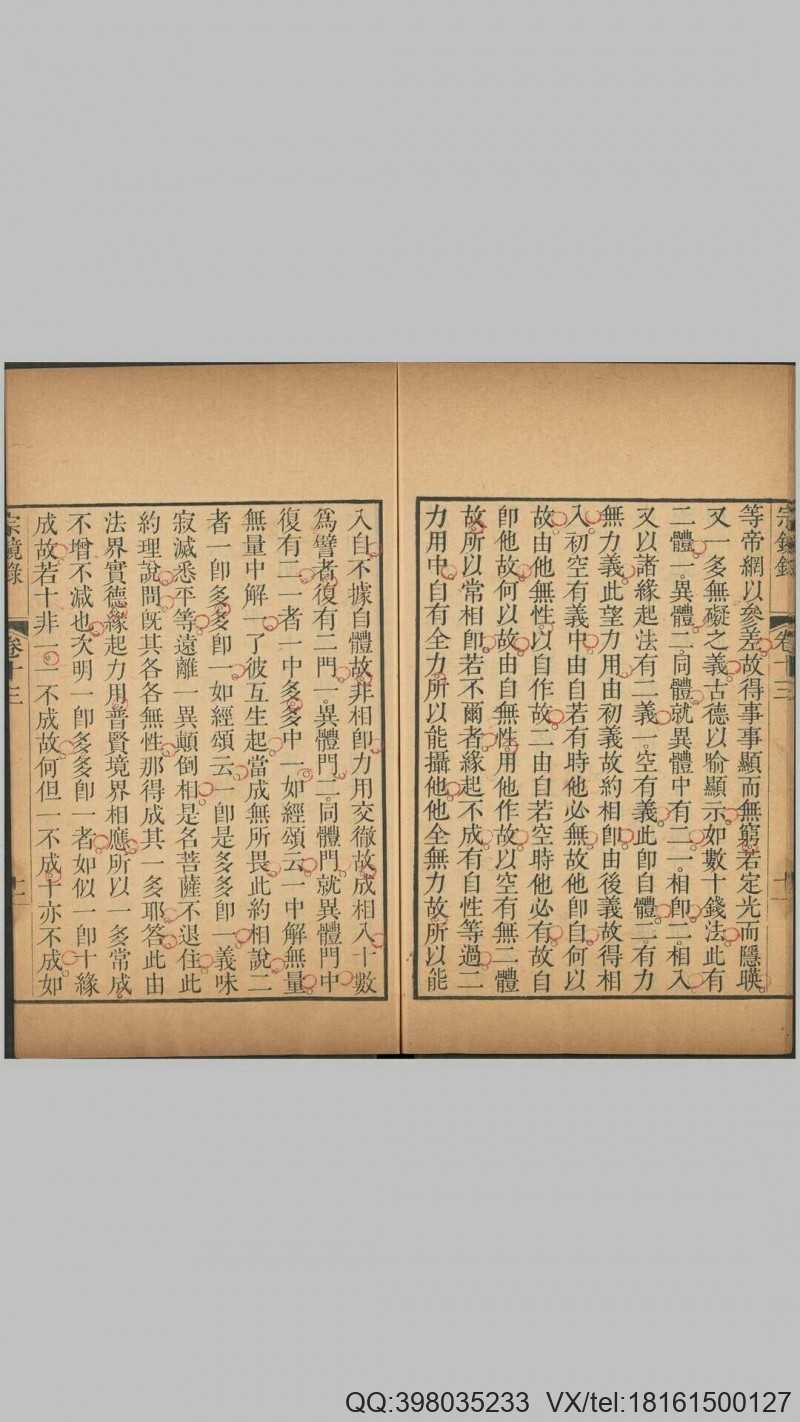 宗鏡錄 卷十三
等帝網以參差。故得事事顯而無窮。若定光而隱暎。
又一多無礙之義。古德以喻顯示。如數十錢法。此有
二體。一異體。二同體。就異體中有二。一相卽。二相入。
又以諸緣起法有二義。一空有義。此卽自體。二有力
無力義。此望力用。由初義故約相卽。由後義故得相
入。初空有義中。由自若有時他必無。故他卽自。何以
故。由他無性。以自作故。二由自若空時他必有。故自
卽他故。何以故。由自無性。用他作故。以空有無二體
故。所以常相卽。若不爾者。緣起不成。有自性等過。二
力用中。自有全力。所以能攝他。他全無力故。所以能
入自。不據自體故。非相卽。力用交徹故。成相入。十數
爲譬者。復有二門。一異體門。二同體門。就異體門中
復有二。一者一中多。多中一。如經頌云。一中解無量。
無量中解一。了彼互生起。當成無所畏。此約相說。二
者一卽多。多卽一。如經頌云。一卽是多多卽一。義味
寂滅悉平等。遠離一異顛倒相。是名菩薩不退住。此
約理說。問。旣其各各無性。那得成其一多耶。答。此由
法界實德緣起力用。普賢境界相應。所以一多常成。
不增不減也。次明一卽多多卽一者。如似一卽十緣
成故。若十非一。一不成故。何但一不成。十亦不成。如
宗鏡錄 卷十三
QQ:398035233 VX/tel:18161500127